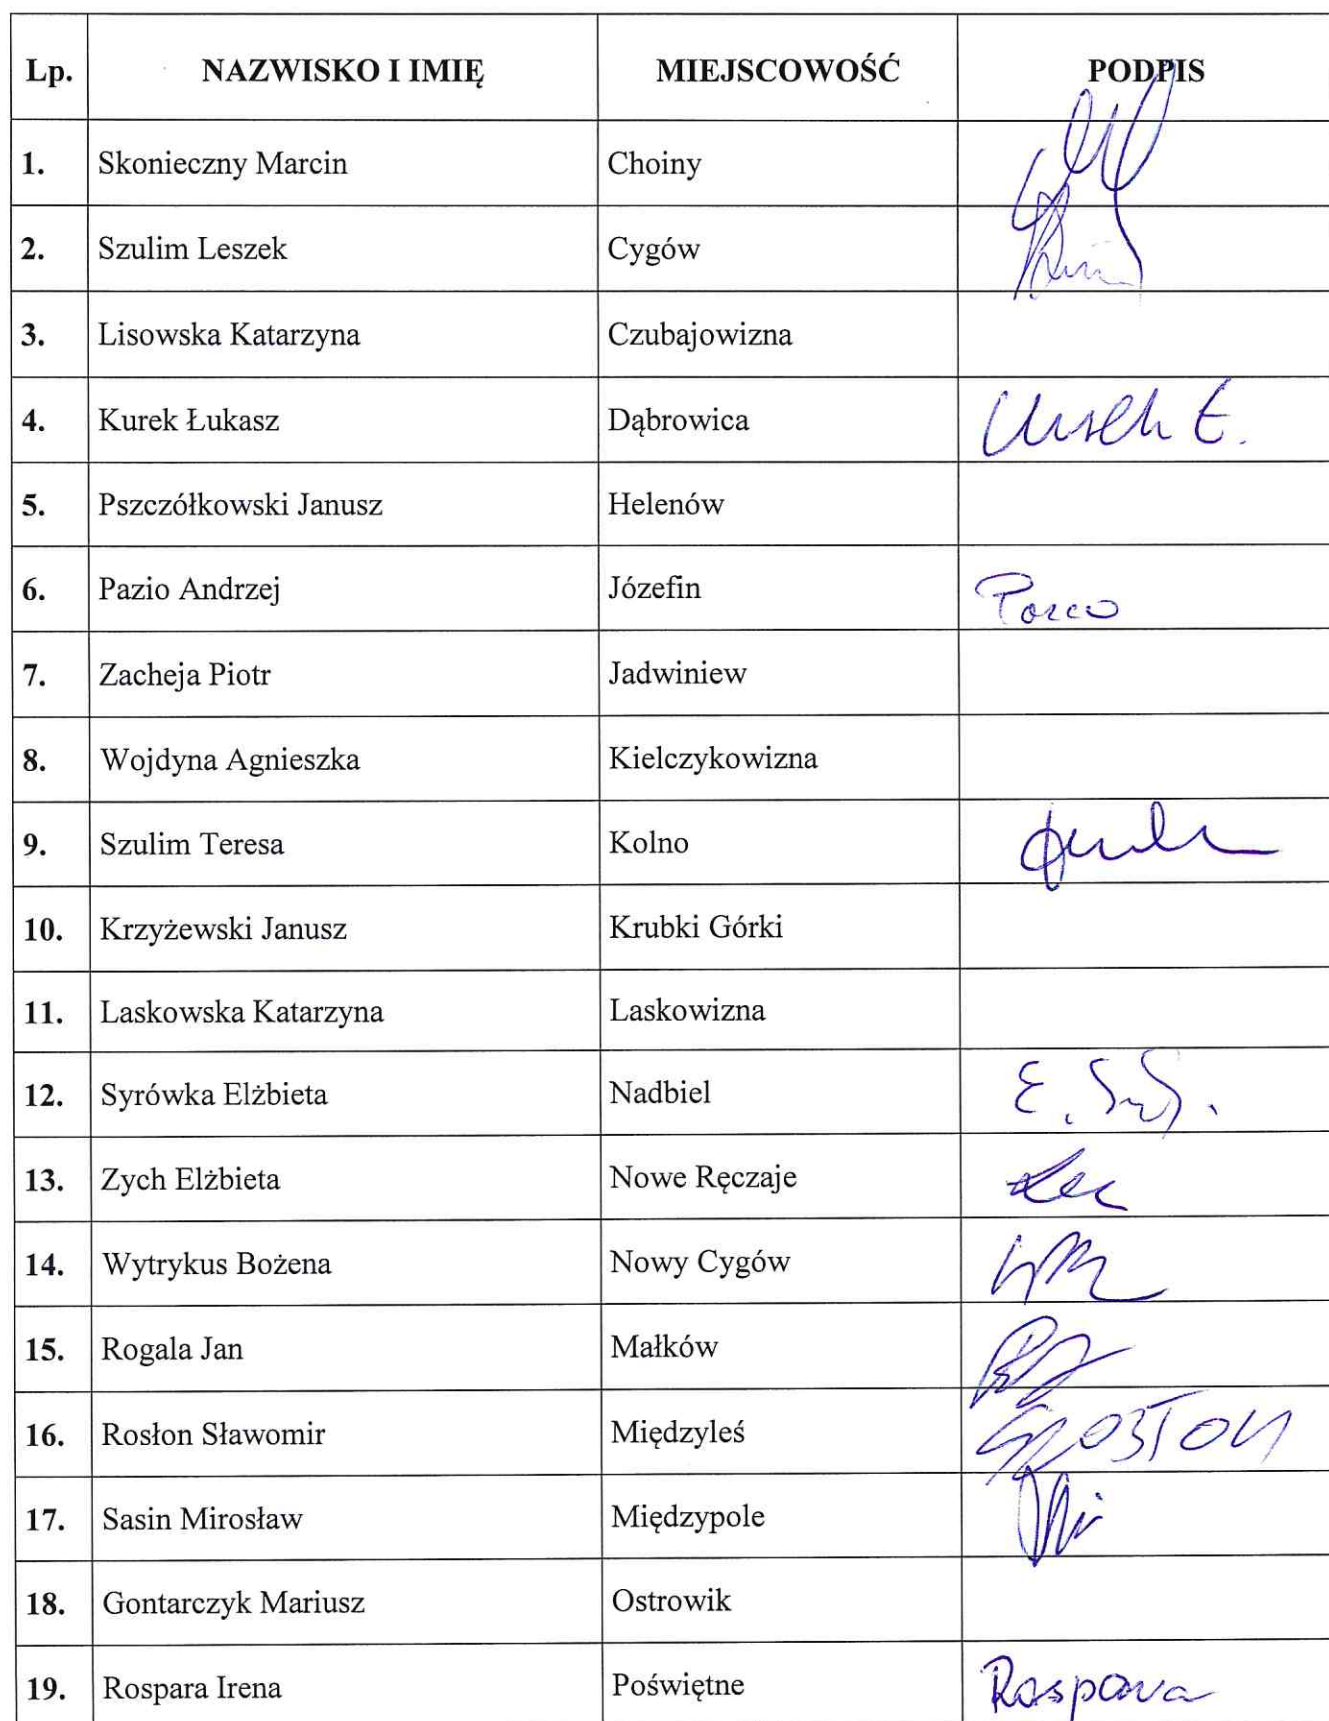 Lp. NAZWISKO I IMIĘ MIEJSCOWOŚĆ PODPIS
1. Skonieczny Marcin Choiny
2. Szulim Leszek Cygów
3. Lisowska Katarzyna Czubajowizna
4. Kurek Łukasz Dąbrowica
5. Pszczółkowski Janusz Helenów
6. Pazio Andrzej Józefin
7. Zacheja Piotr Jadwiniew
8. Wojdyna Agnieszka Kielczykowizna
9. Szulim Teresa Kolno
10. Krzyżewski Janusz Krubki Górki
11. Laskowska Katarzyna Laskowizna
12. Syrówka Elżbieta Nadbiel
13. Zych Elżbieta Nowe Ręczaje
14. Wytrykus Bożena Nowy Cygów
15. Rogala Jan Małków
16. Rosłon Sławomir Międzyleś
17. Sasin Mirosław Międzypole
18. Gontarczyk Mariusz Ostrowik
19. Rospara Irena Poświętne Rospara